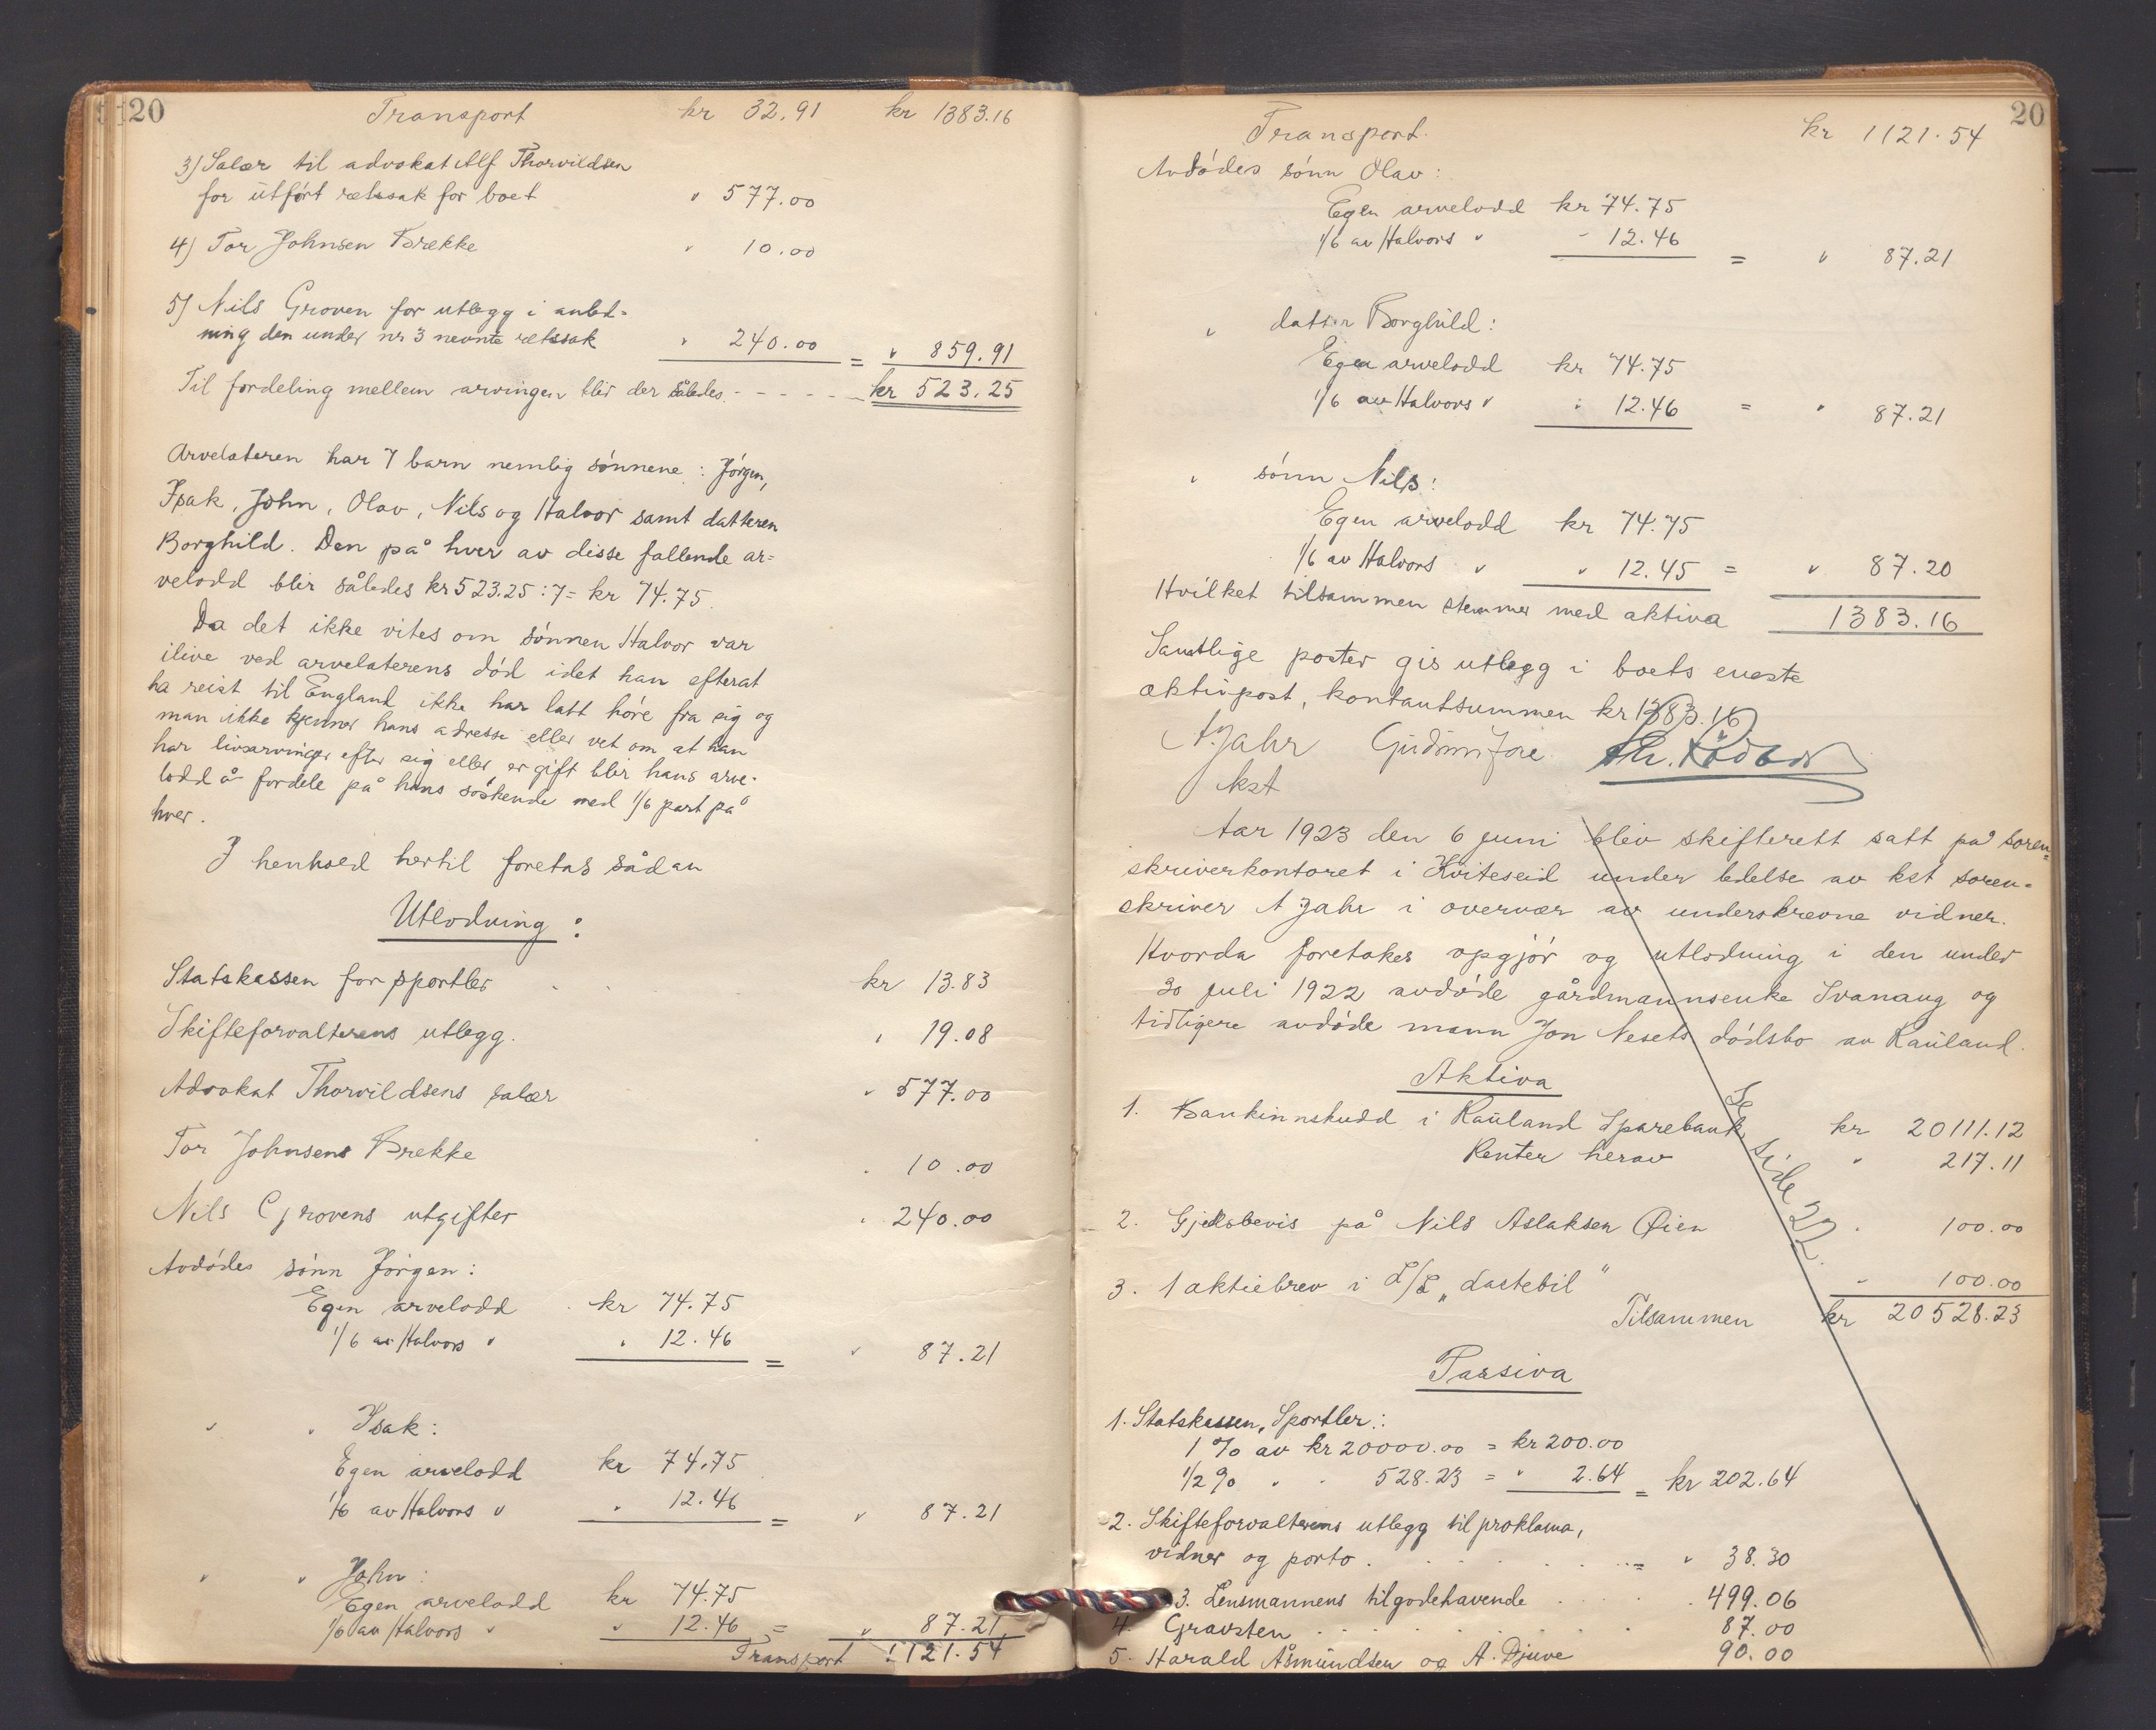 20
Transport kr 32.91 kr 1383.16
3) Salær til advokat Alf Thorvildsen
for utført retssak for boet " 577.00
4) Tor Johnsen Brekke " 10.00
5) Nils Groven for utlegg i anled-
ning den under nr 3 nevnte retssak " 240.00 = " 859.91
Til fordeling mellem arvingen blir der således - - - - - kr 523.25
Arvelateren har 7 barn nemlig sønnene: Jørgen,
Isak, John, Olav, Nils og Halvor samt datteren
Borghild. Den på hver av disse fallende ar=
velodd blir således kr 523.25 : 7 = kr 74.75.
Da det ikke vites om sønnen Halvor var
ilive ved arvelaterens død idet han efterat
ha reist til England ikke har latt høre fra sig og
man ikke kjenner hans adresse eller vet om at han
har livsarvinger efter sig eller er gift blir hans arve-
lodd å fordele på hans søskende med 1/6 part på
hver.
I henhold hertil foretas sådan
Utlodning:
Statskassen for sportler kr 13.83
Skifteforvalterens utlegg. " 19.08
Advokat Thorvildsens salær " 577.00
Tor Johnsens Brekke " 10.00
Nils Grovens utgifter " 240.00
Avdødes sønn Jørgen:
Egen arvelodd kr 74.75
1/6 av Halvors " " 12.46 = " 87.21
" " Isak:
Egen arvelodd kr 74.75
1/6 av Halvors " " 12.46 = " 87.21
" " John:
Egen arvelodd kr 74.75
1/6 av Halvors " " 12.46 = " 87.21
Transport 1121.54
20
Transport. kr 1121.54
Avdødes sønn Olav:
Egen arvelodd kr 74.75
1/6 av Halvors " - 12.46 = " 87.21
" datter Borghild:
Egen arvelodd kr 74.75
1/6 av Halvors " " 12.46 = " 87.21
" sønn Nils:
Egen arvelodd kr 74.75
1/6 av Halvors " " 12.45 = " 87.20
Hvilket tilsammen stemmer med aktiva 1383.16
Samtlige poster gis utlegg i boets eneste
aktivpost, kontantsummen kr 1383.16
A. Jahr
kst
Aar 1923 den 6 juni blev skifterett satt på soren=
skriverkontoret i Kviteseid under ledelse av kst soren-
skriver A Jahr i overvær av underskrevne vidner.
Hvorda foretakes opgjør og utlodning i den under
30 juli 1922 avdøde gårdmannsenke Svanaug og
tidligere avdøde mann Jon Nesets dødsbo av Rauland.
Aktiva
1. Bankinnskudd i Rauland Sparebank kr 20111.12
Renter herav " 217.11
2. Gjeldsbevis på Nils Aslaksen Øien " 100.00
3. 1 aktiebrev i L/L "Lastebil" " 100.00
Tilsammen kr 20528.23
Se side 22.
Passiva
1. Statskassen, Sportler:
1 % av kr 20000.00 = kr 200.00
1/2 % " " 528.23 = " 2.64 = kr 202.64
2. Skifteforvalterens utlegg til proklama,
vidner og porto. = " 38.30
3. Lensmannens tilgodehavende 499.06
4. Gravsten 87.00
5. Harald Åsmundsen og A. Djuve 90.00